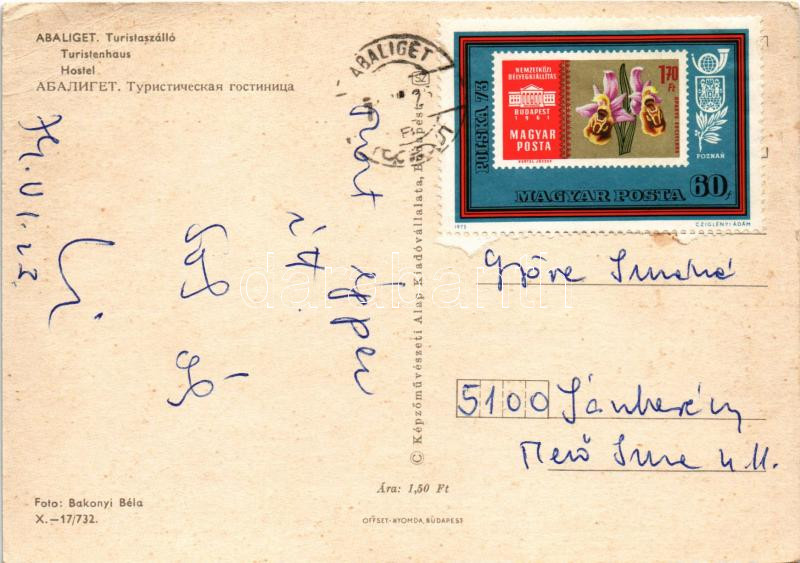 ABALIGET. Turistaszálló
Turistenhaus
Hostel
АБАЛИГЕТ. Туристическая гостиница
ABALIGET
POLSKA 73
NEMZETKÖZI
BÉLYEGKIÁLLÍTÁS
BUDAPEST
1961
MAGYAR
POSTA
1,70
Ft
POZNAŃ
MAGYAR POSTA 60f
1973 CZIGLÉNYI ÁDÁM
Most éppen
itt
© Képzőművészeti Alap Kiadóvállalata, Budapest
darabanth
Györe Imréné
5100 Jánberény
Merő Imre u 11.
Ára: 1,50 Ft
Foto: Bakonyi Béla
X.—17/732.
OFFSET-NYOMDA, BUDAPEST